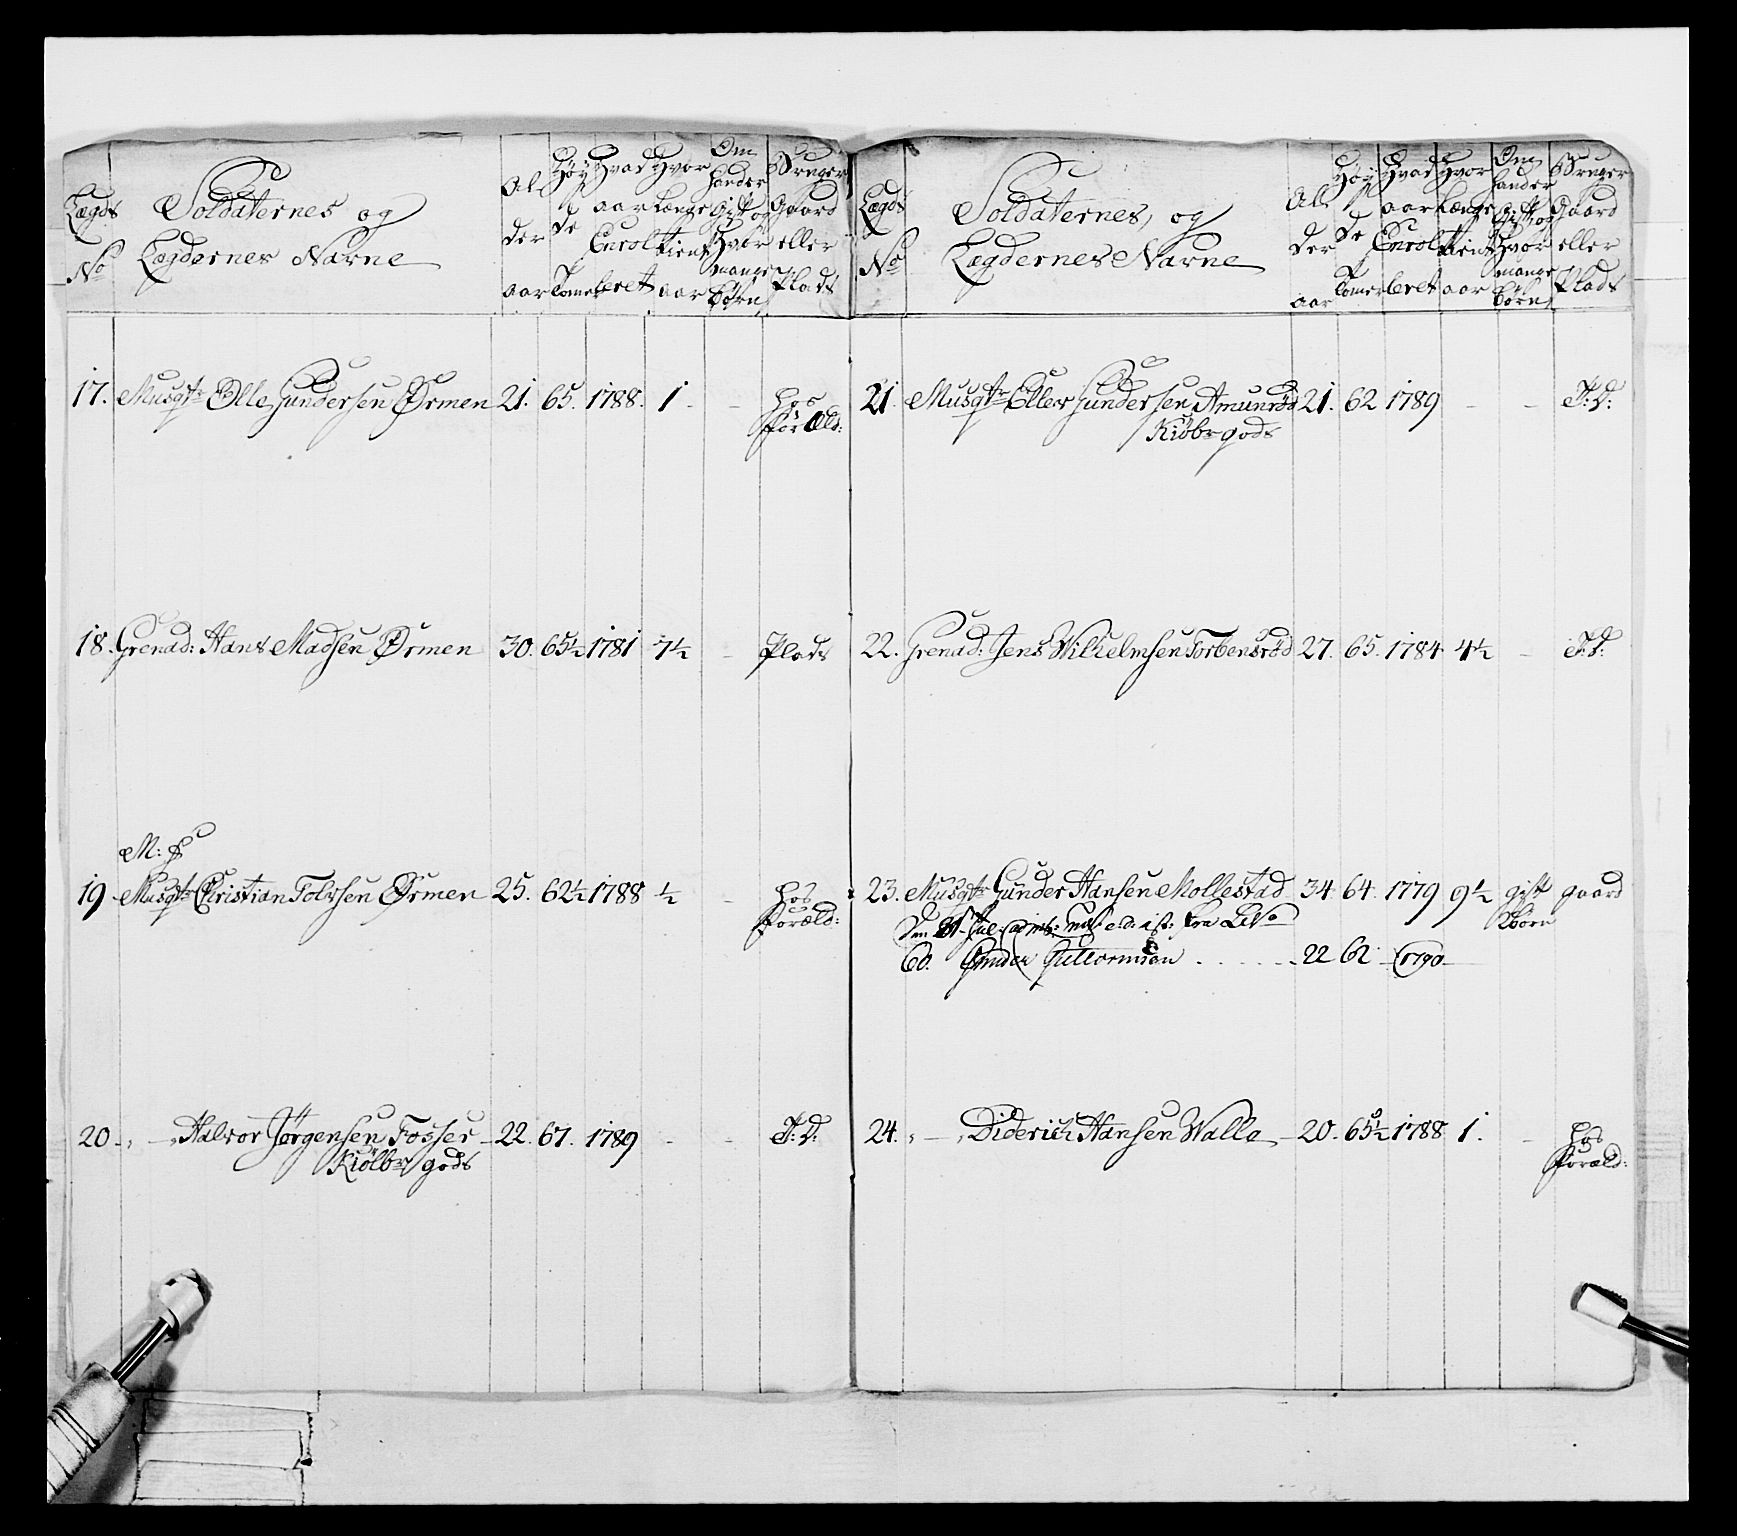 Lægds No
Soldaternes og Lægdernes Navne
Alder aar
Høyde Tomer
Hvad aar Enrolleret
Hvor længe tient aar
Om hand er Gift og Hvor mange Børn
Bruger Gaard eller Plads
17. Musqtr Olle Gundersen Ørmen 21. 65. 1788. 1 - - hos Foræld:
18. Grenad: Hans Madsen Ørmen 30. 65½ 1781 7½ - Plads
M: f
19 Musqtr Christian Tolvsen Ørmen 25. 62½ 1788 ½ - hos Foræld:
20 - „ - „ Halvor Jørgensen Fosser 22. 67. 1789 - - T: D:
Kiølbr gods
Lægds No
Soldaternes, og Lægdernes Navne
Alder aar
Høyde Tomer
Hvad aar Enrolleret
Hvor længe tient aar
Om hand er Gift og Hvor mange Børn
Bruger Gaard eller Plads
21. Musqtr Olle Gundersen Amunrød 21. 62 1789 - - T: D:
Kiölbr gods
22. Grenad: Jens Vilhelmsen Torbensrød 27. 65. 1784 4½ - T: D:
23. Musqtr Gunder Hansen Mollestad 34. 64. 1779 9½ gift 2 børn gaard
Den Jul: fra
60. Guttormsen - - - 22 62 - 1790
24. „ - „ Diderich Hansen Walle - 20. 65½ 1788 1. - hos Foræld: